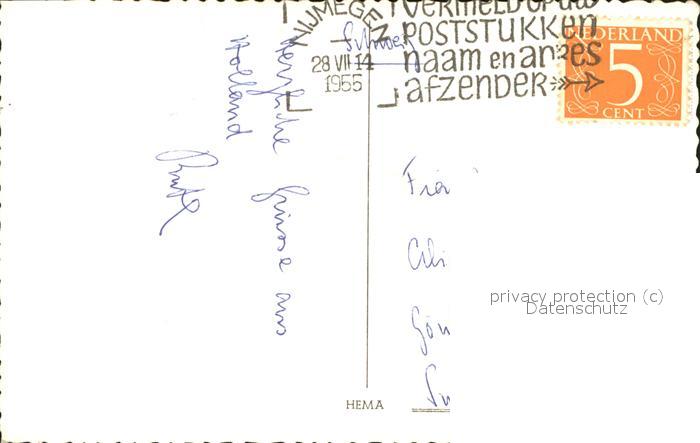 NIJMEGEN
28 VII 14
1955
VERMELD OP UW
POSTSTUKKEN
naam en adres
afzender
NEDERLAND
5
CENT
Schweiz
Herzliche Grüsse aus
Holland
HEMA
privacy protection (c)
Datenschutz